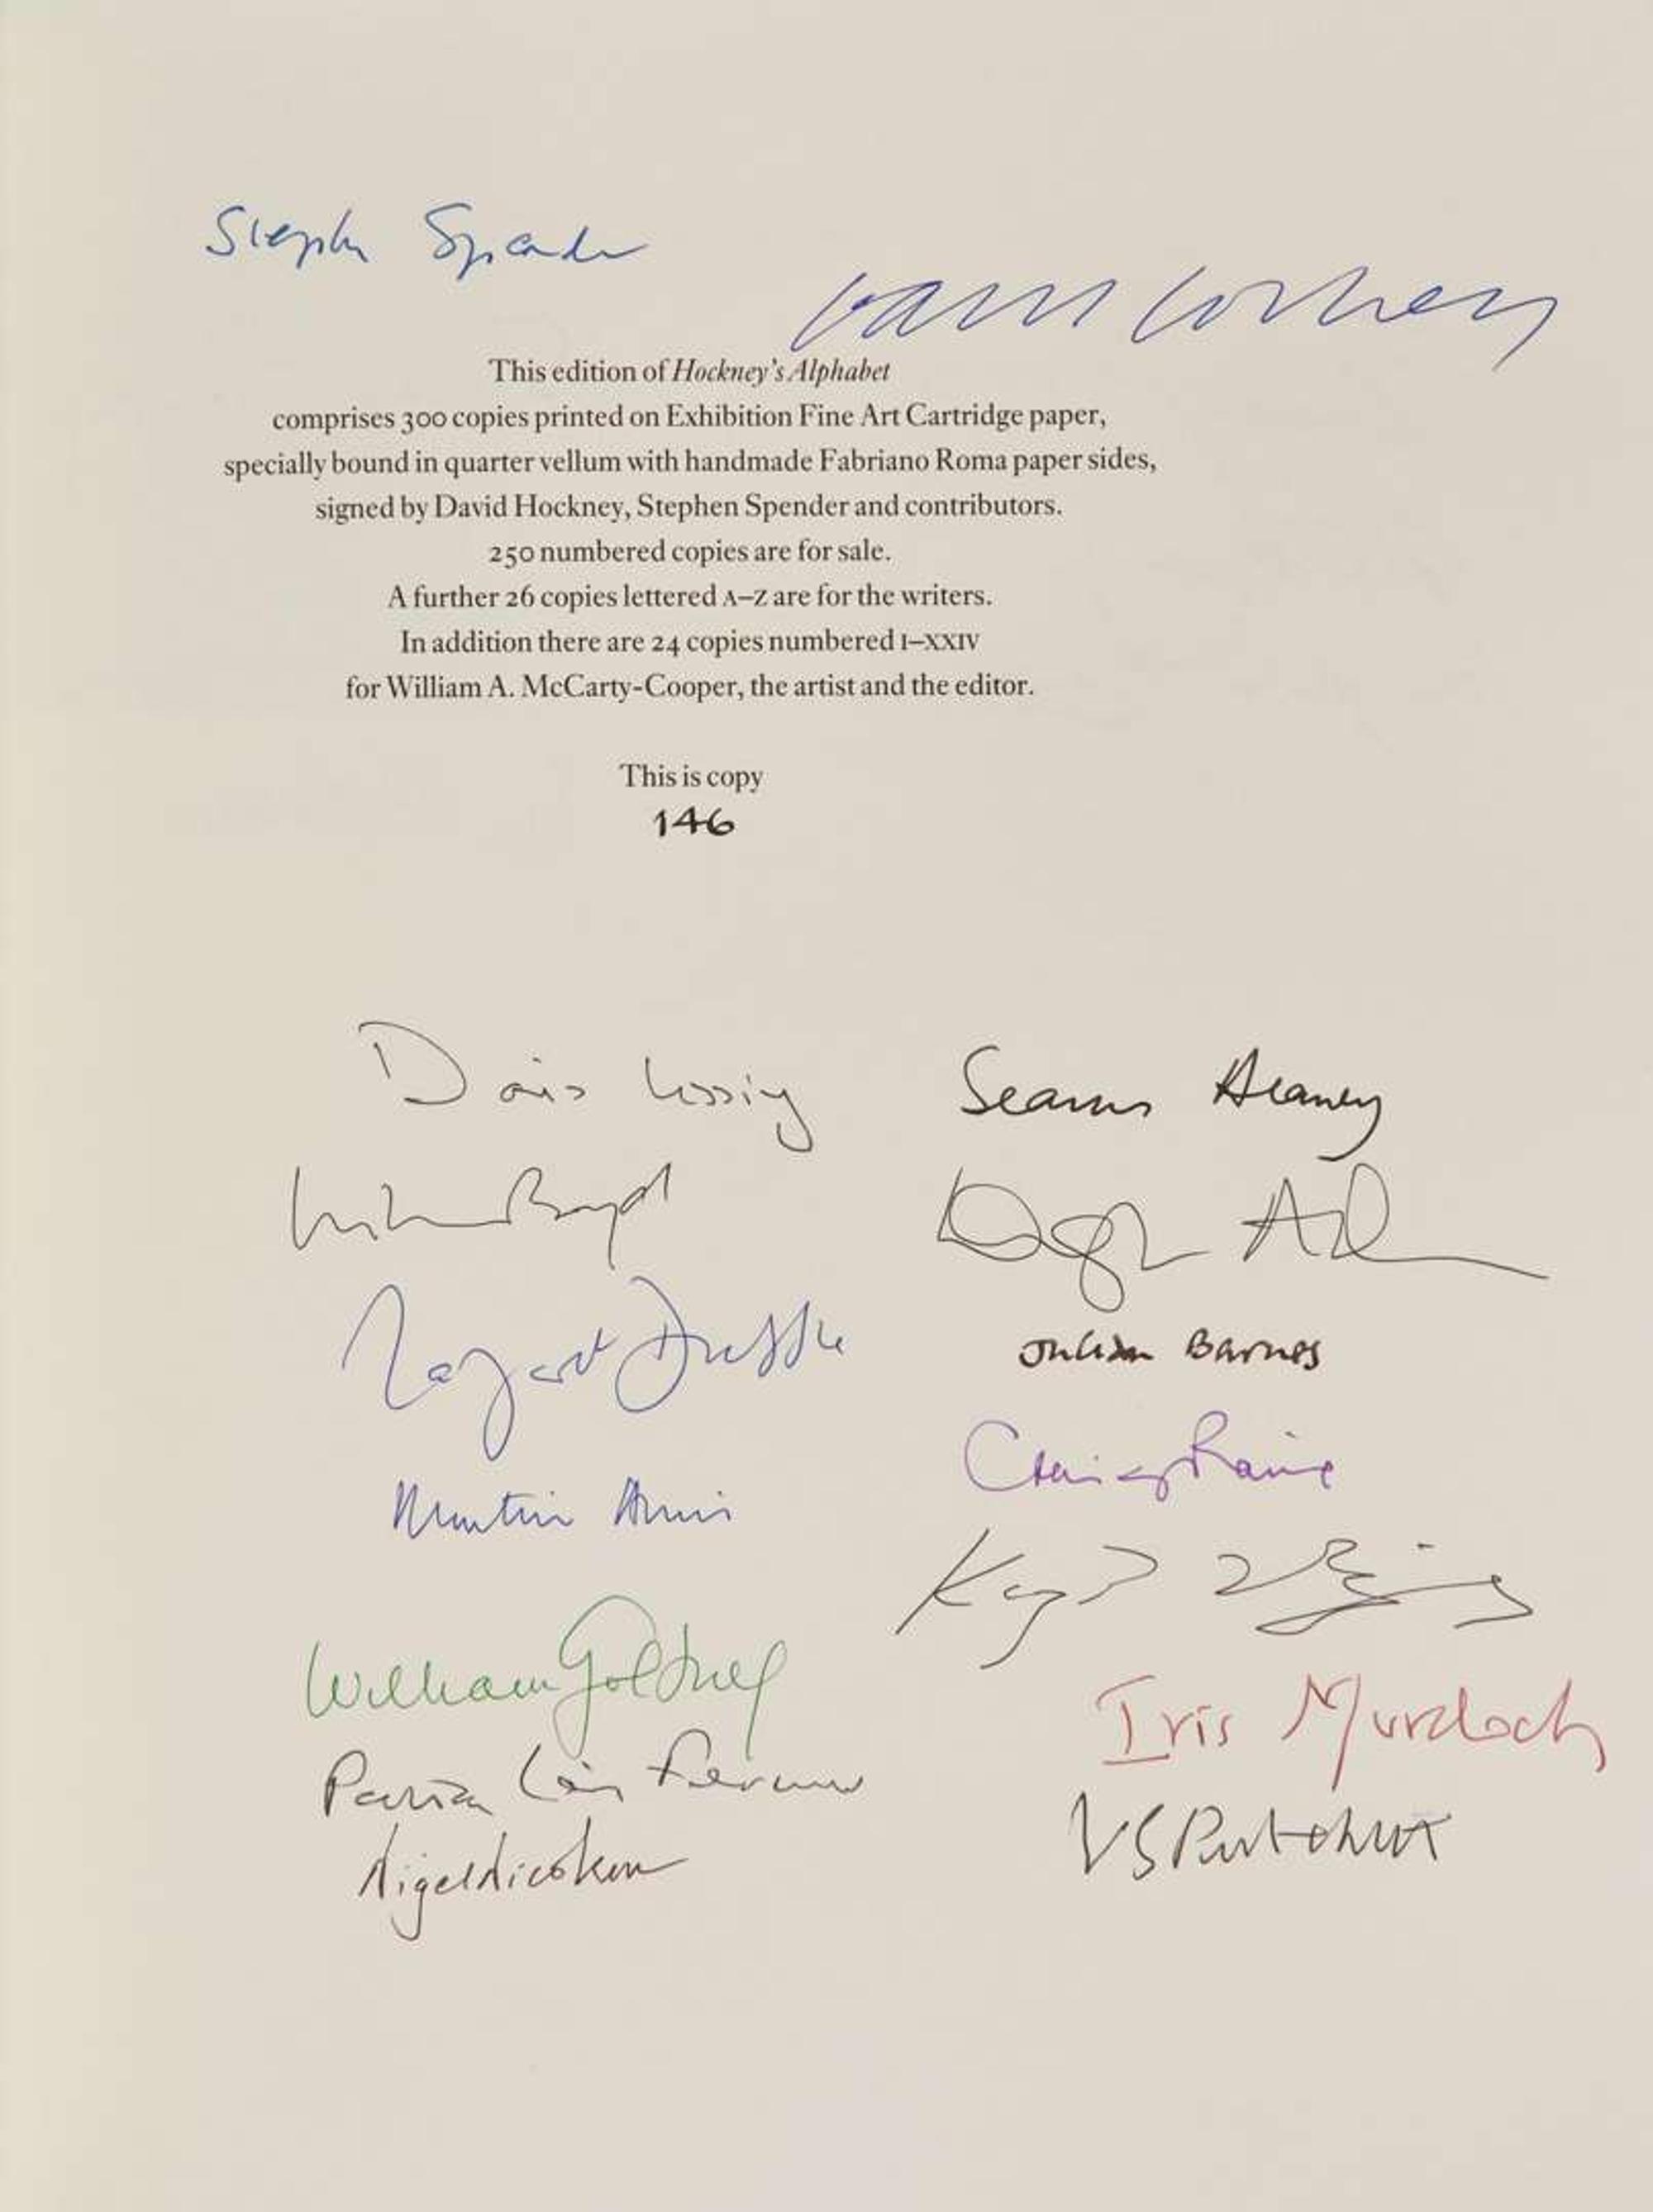 Stephen Spender
David Hockney
This edition of Hockney's Alphabet
comprises 300 copies printed on Exhibition Fine Art Cartridge paper,
specially bound in quarter vellum with handmade Fabriano Roma paper sides,
signed by David Hockney, Stephen Spender and contributors.
250 numbered copies are for sale.
A further 26 copies lettered A–Z are for the writers.
In addition there are 24 copies numbered I–XXIV
for William A. McCarty-Cooper, the artist and the editor.
This is copy
146
Doris Lessing
Seamus Heaney
William Boyd
Douglas Adams
Margaret Drabble
Julian Barnes
Craig Raine
Martin Amis
Kazuo Ishiguro
William Golding
Iris Murdoch
Patrick Leigh Fermor
VS Pritchett
Nigel Nicolson